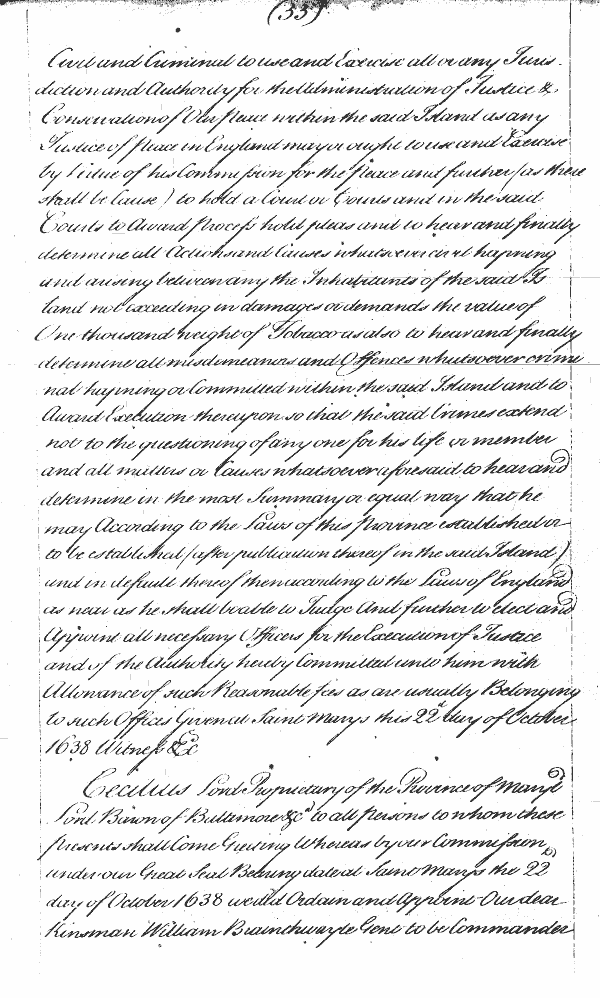 (33)
Civil and Criminal to use and Exercise all or any Juris-
diction and Authority for the Administration of Justice &
Conservation of Our peace within the said Island as any
Justice of peace in England may or ought to use and Exercise
by Virtue of his Commission for the Peace and further (as there
shall be Cause) to hold a Court or Courts and in the said
Courts to Award Process hold pleas and to hear and finally
determine all Actions and Causes whatsoever civil hapning
and arising between any the Inhabitants of the said Is
land not exceeding in damages or demands the value of
One thousand weight of Tobacco as also to hear and finally
determine all misdemeanors and Offences whatsoever crimi
nal hapning or Committed within the said Island and to
Award Execution thereupon so that the said Crimes extend
not to the questioning of any one for his life or member
and all matters or Causes whatsoever aforesaid to hear and
determine in the most Summary or equal way that he
may According to the Laws of this Province established or
to be established (after publication thereof in the said Island)
and in default thereof then according to the Laws of England
as near as he shall be able to Judge And further to elect and
Appoint all necessary Officers for the Execution of Justice
and of the Authority hereby Committed unto him with
Allowance of such Reasonable fees as are usually Belonging
to such Offices Given at Saint Marys this 22d day of October
1638 Witness &c
Cecilius Lord Proprietary of the Province of Maryld
Lord Baron of Baltimore &c to all persons to whom these
presents shall Come Greeting Whereas by our Commission
under our Great Seal Bearing date at Saint Marys the 22d
day of October 1638 we did Ordain and Appoint Our dear
Kinsman William Brainthwayte Gent to be Commander